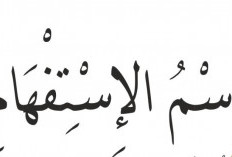 سْمُ الإسْتِفْهَا